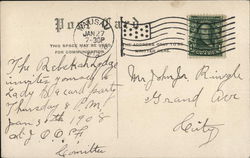 Post Card
THIS SPACE MAY BE USED
FOR COMMUNICATION.
THE ADDRESS ONLY TO BE
WRITTEN HERE.
JAN 27
-30P
The Rebekah Lodge
invites you and
Lady to a card party
Thursday 8 P.M.
Jan 30th 1908
at I O O F
Committee
Mr John Jr. Ringle
Grand Ave
City